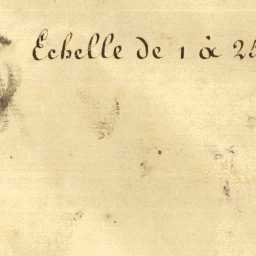 Echelle de 1 à 25